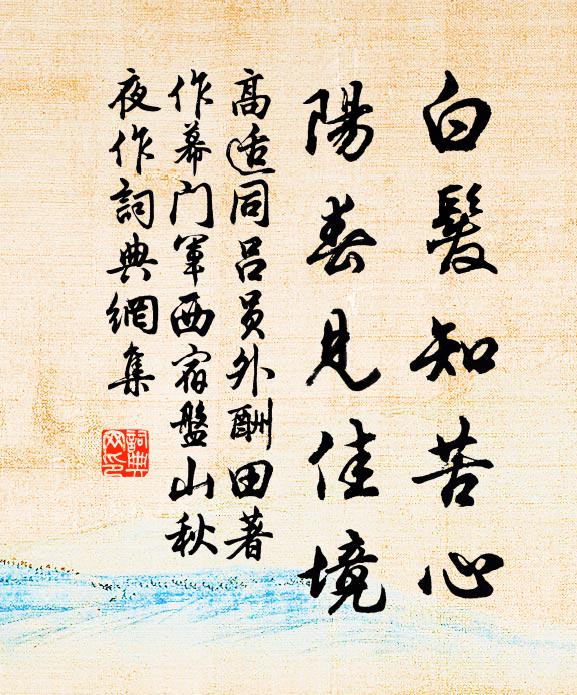 白髮知苦心
陽春見佳境
高适同吕員外酬田著
作幕门軍西宿盤山秋
夜作詞典網集
詞典
网印